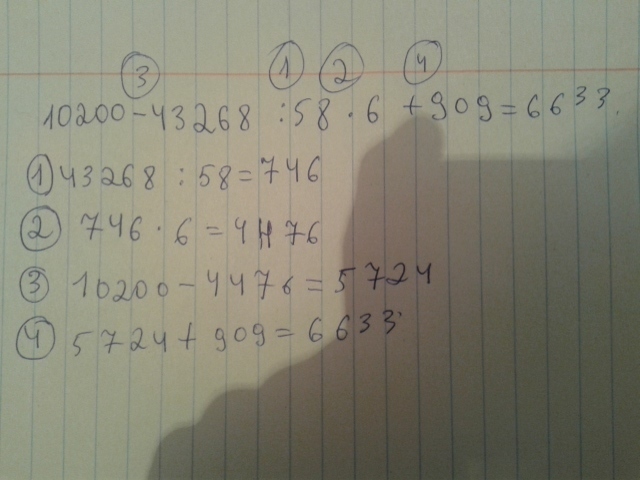 ③ ① ② ④
10200-43268 :58·6 +909=6633.
① 43268 :58=746
② 746·6=4476
③ 10200-4476=5724
④ 5724+909=6633